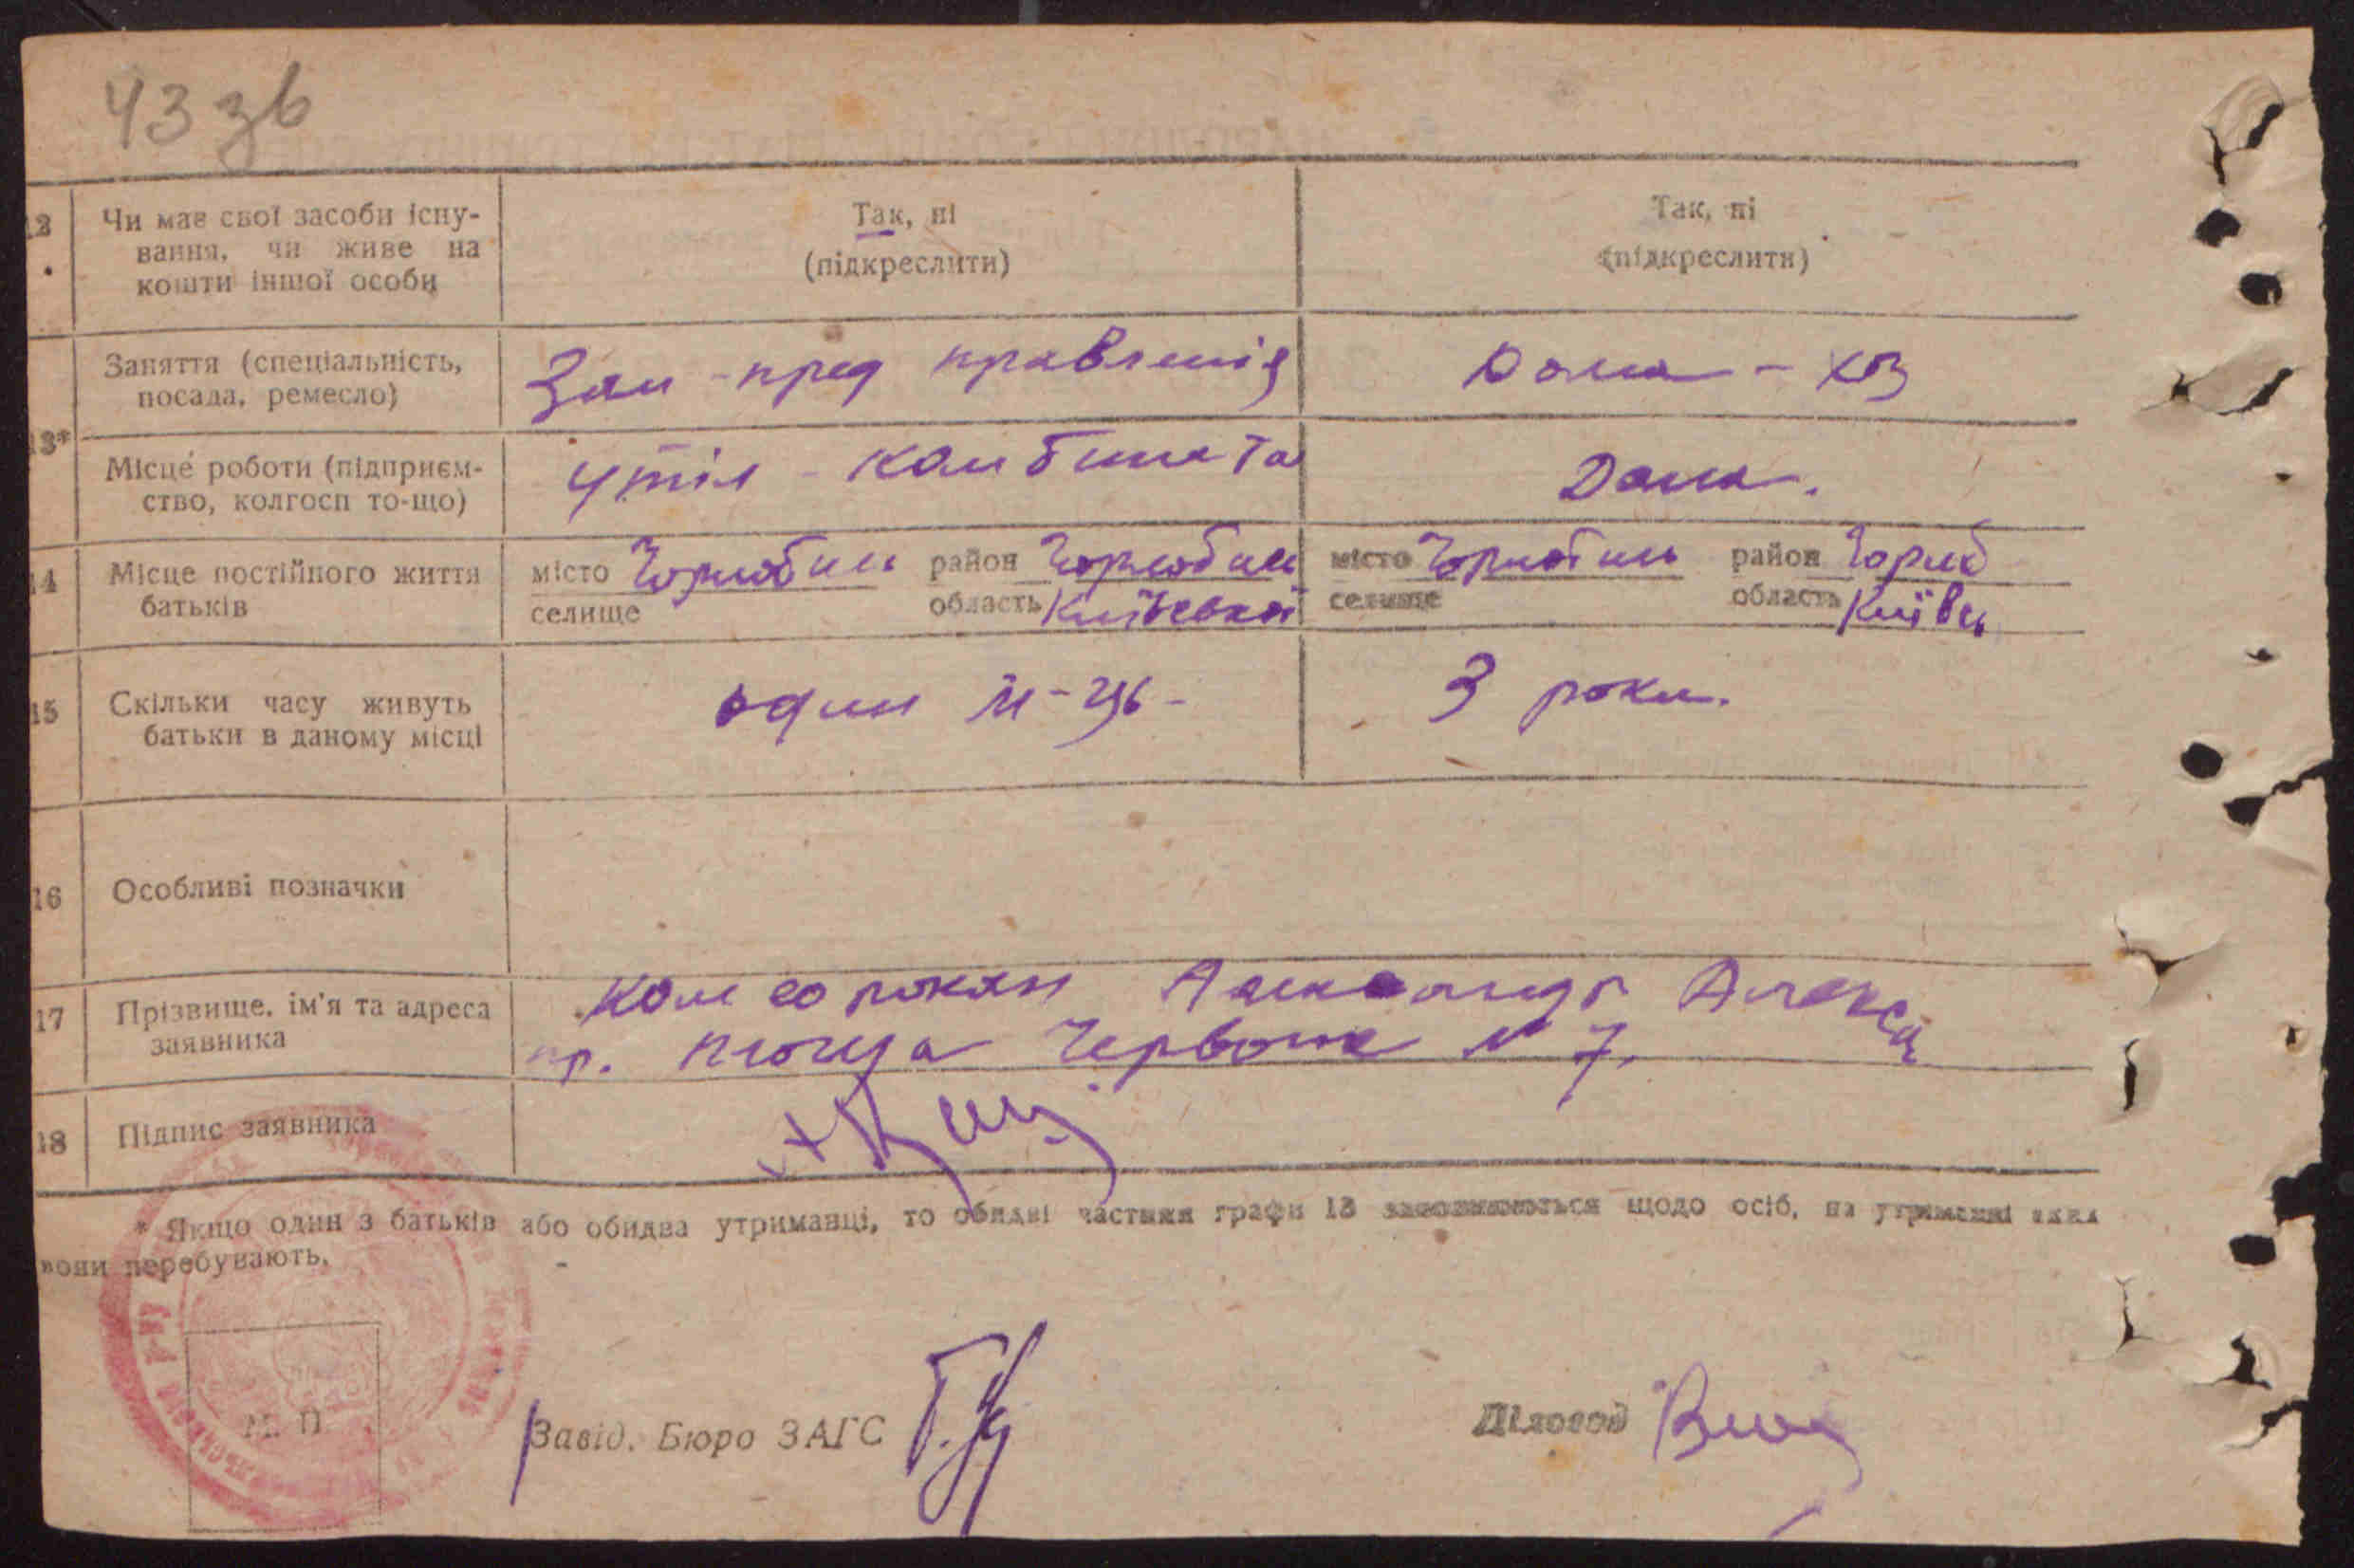 43 зв
12 Чи має свої засоби існу-
вання, чи живе на
кошти іншої особи
Так, ні
(підкреслити)
Так, ні
(підкреслити)
13* Заняття (спеціальність,
посада, ремесло)
Зам - пред правленія
Дома - хоз
Місце роботи (підприєм-
ство, колгосп то-що)
Утіл - комбината
Дома.
14 Місце постійного життя
батьків
місто Чорнобиль район Чорнобиль
селище область Київської
місто Чорнобиль район Чорноб
селище область Київсь
15 Скільки часу живуть
батьки в даному місці
один м-ць -
3 роки.
16 Особливі позначки
17 Прізвище, ім'я та адреса
заявника
Александр Алекс
пр. площа Червона № 7.
18 Підпис заявника
* Якщо один з батьків або обидва утриманці, то обидві частини графи 13 заповнюються щодо осіб, на утриманні яких
вони перебувають.
М. П.
Завід. Бюро ЗАГС
Діловод